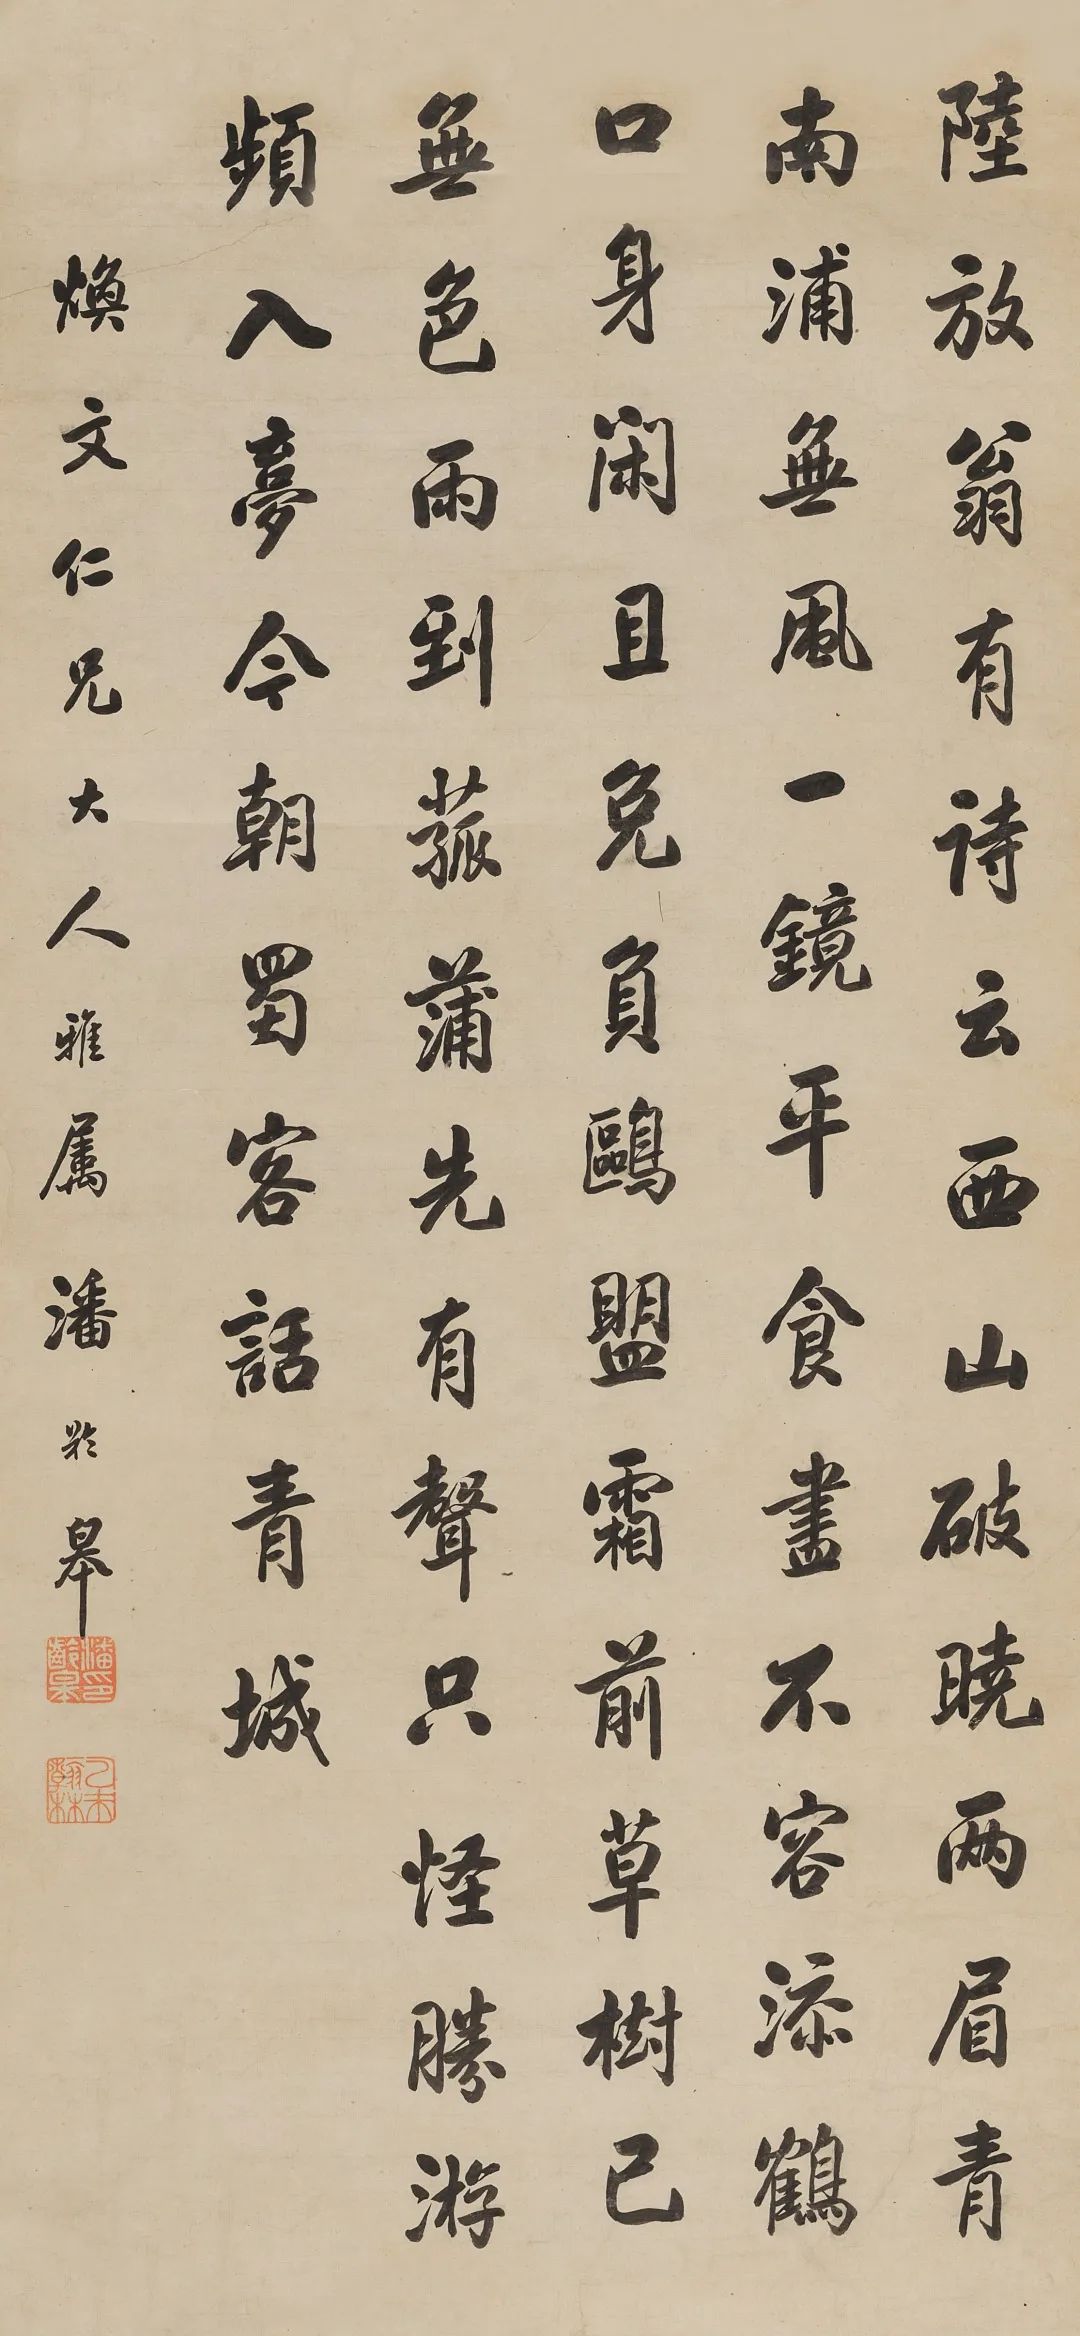 陸放翁有詩云西山破曉两眉青
南浦無風一鏡平食盡不容添鶴
口身閑且免負鷗盟霜前草樹已
無色雨到菰蒲先有聲只怪勝游
頻入夢今朝蜀客話青城
煥文仁兄大人雅属 潘齡皋
潘印齡皋
乙未翰林